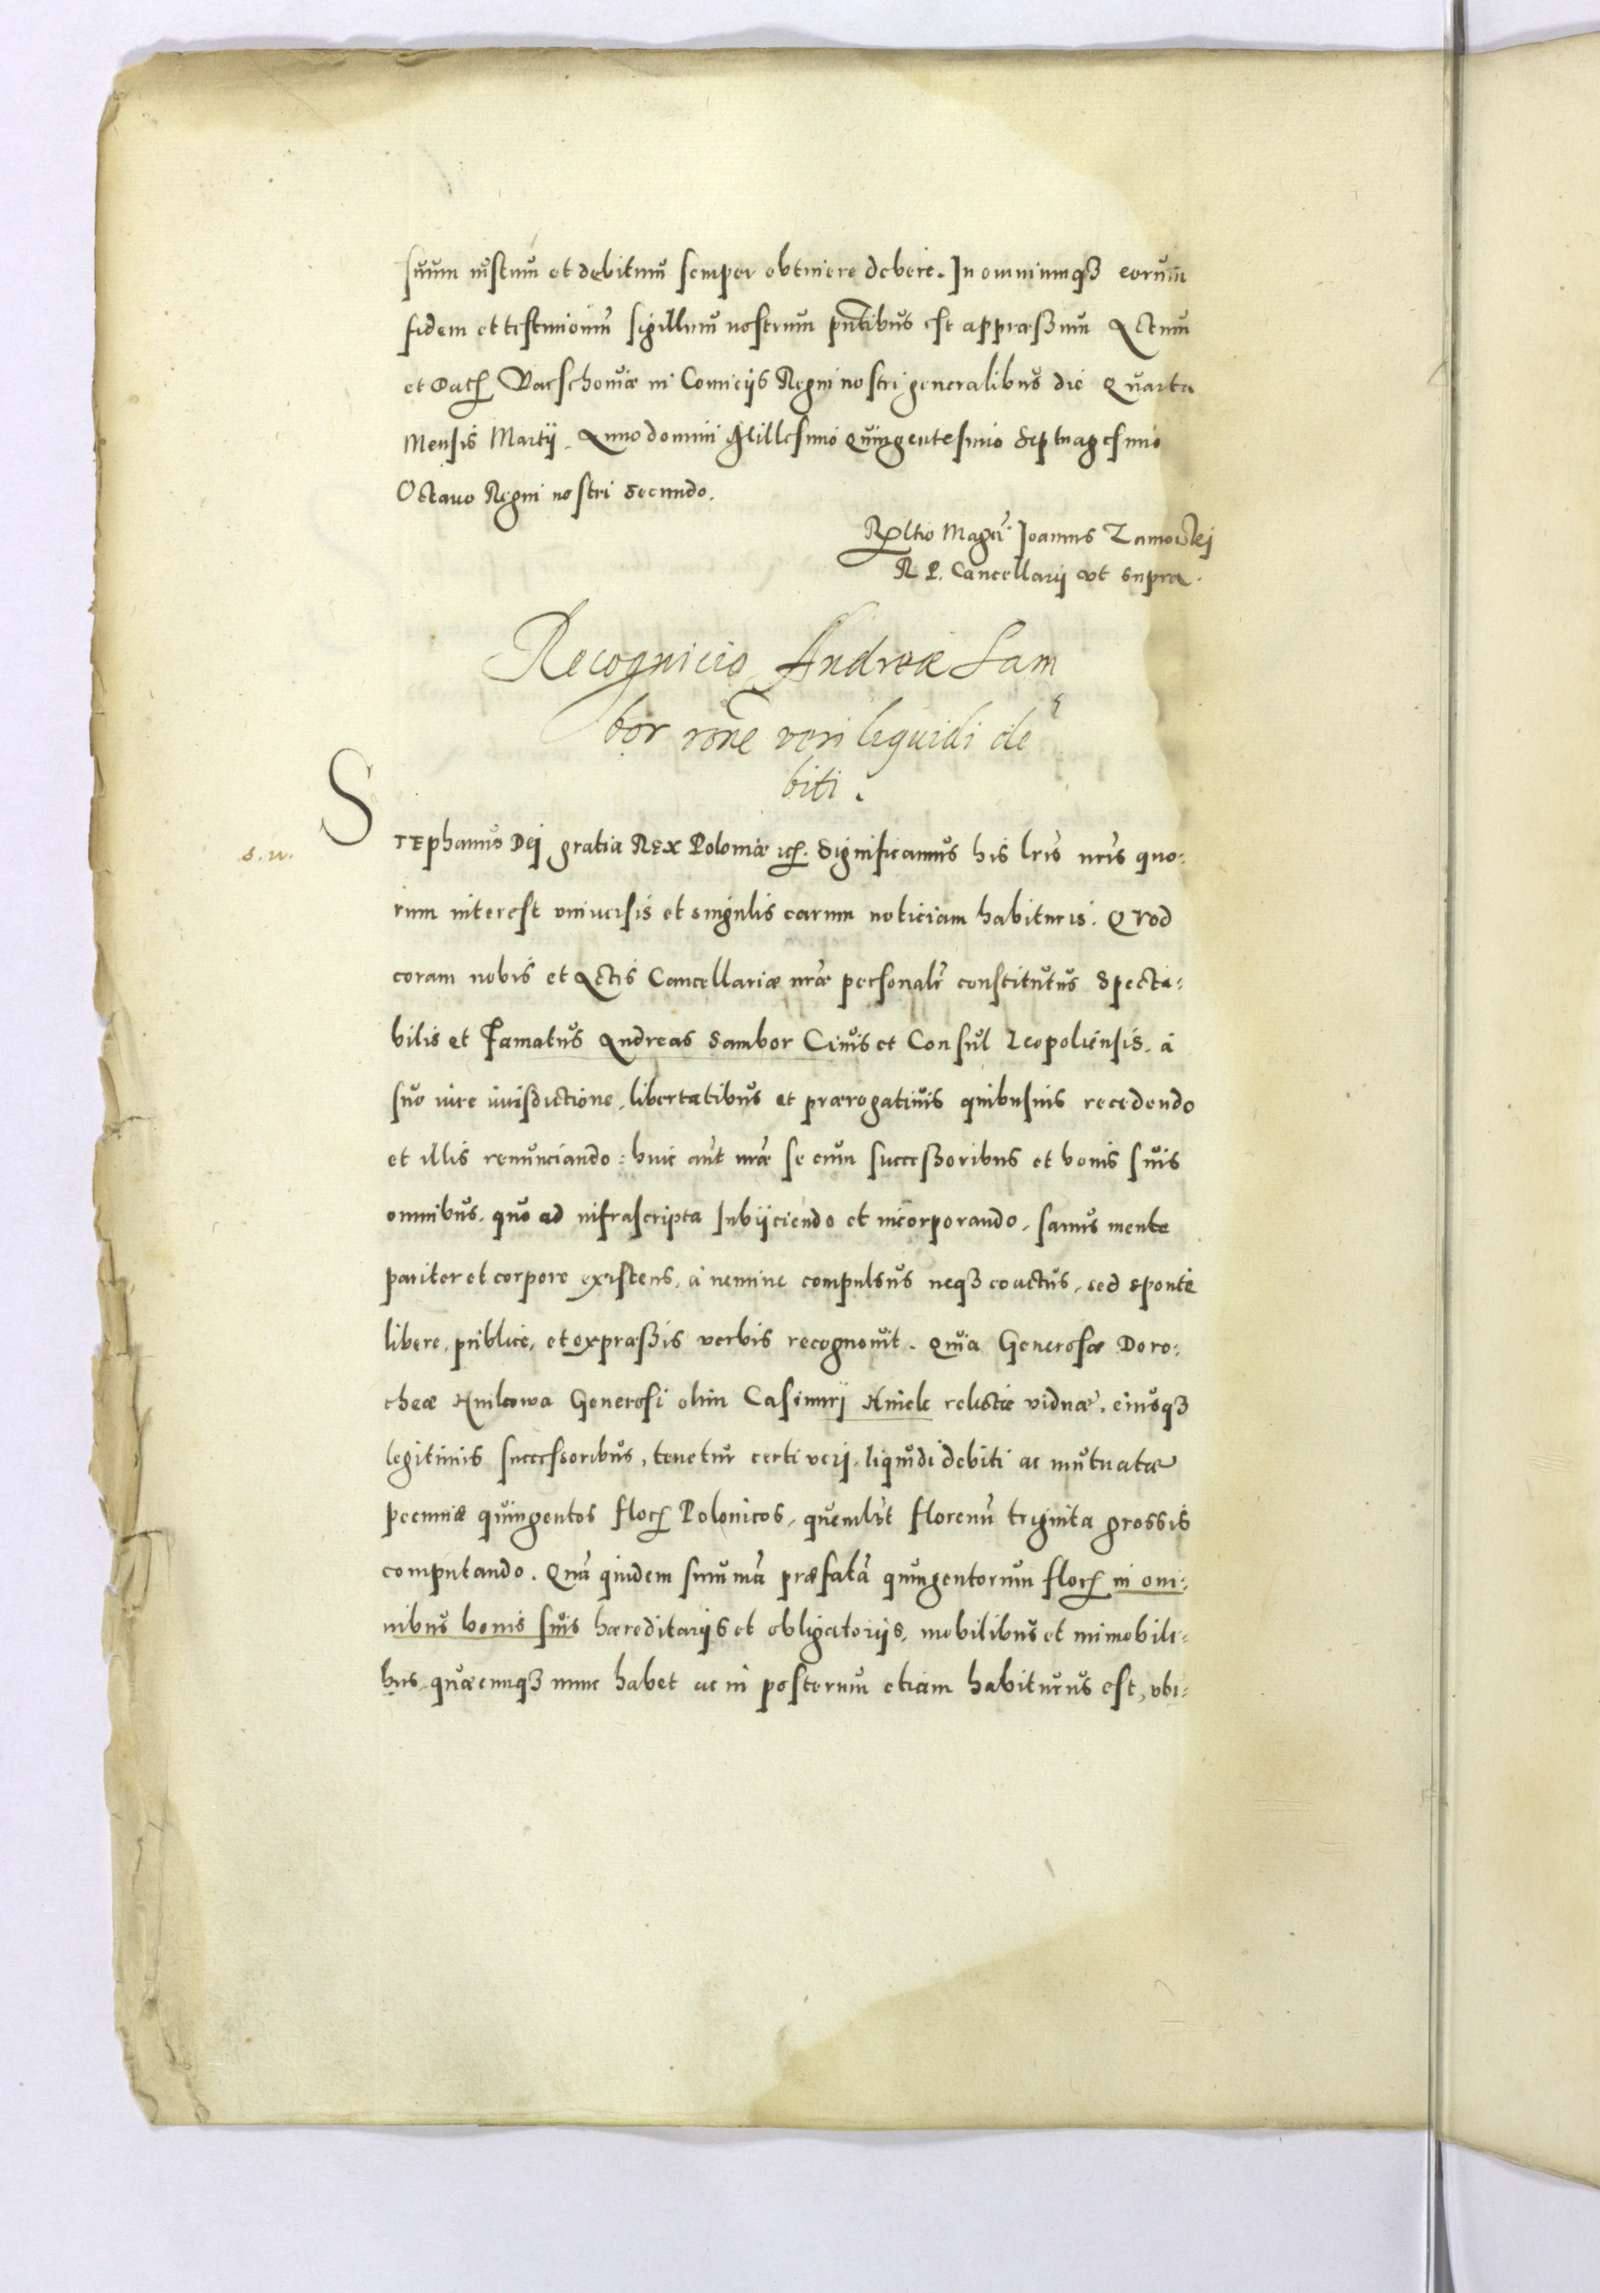 suum iustum et debitum semper obtinere debere. In omniumqȝ eorum
fidem et testimoniũ sigillum nostrum pn̄tibus est appræssum Actum
et Datꝭ Varschoviæ in Comiciis Regni nostri generalibus die Quarta
Mensis Martij. Anno domini Millesimo Quingentesimo Septuagesimo
Octavo Regni nostri Secundo.
Rltio Magcī Joannis Zamoiskj
R P. Cancellarij ut supra.
Recognicio Andreæ Sam
bor rōne veri liquidi de
biti.
s. w.
STEphanus Dej gratia REx Poloniæ ꝛcꝭ. Significamus his lr̄is nr̄is quo:
rum interest universis et singulis earum noticiam habituris. Quod
coram nobis et Actis Cancellariæ nr̄æ personalr̄ constitutus Specta:
bilis et Famatus Andreas Sambor Civis et Consul Leopoliensis, à
suo iure iurisdictione, libertatibus et prærogativis quibusvis recedendo
et illis renunciando: huic aūt nr̄æ se cum successoribus et bonis suis
omnibus, quo ad infrascripta subijciendo et incorporando, sanus mente
pariter et corpore existens, à nemine compulsus neqȝ coactus, sed sponte
libere, publice, et expræssis verbis recognovit. Quia Generosæ Doro:
theæ Knilowa Generosi olim Casimirj Kniele relictæ viduæ, eiusqȝ
legitimis successoribus, tenetur certi verj, liquidi debiti ac mutuatæ
pecuniæ quingentos florꝭ Polonicos, quemlibt florenū triginta grossis
computando. Quā quidem summā præfatā quingentorum florꝭ in om:
nibus bonis suis hæreditarijs et obligatorijs, mobilibus et immobili:
bus, quæcunqȝ nunc habet ac in posterum etiam habiturus est, ubi: